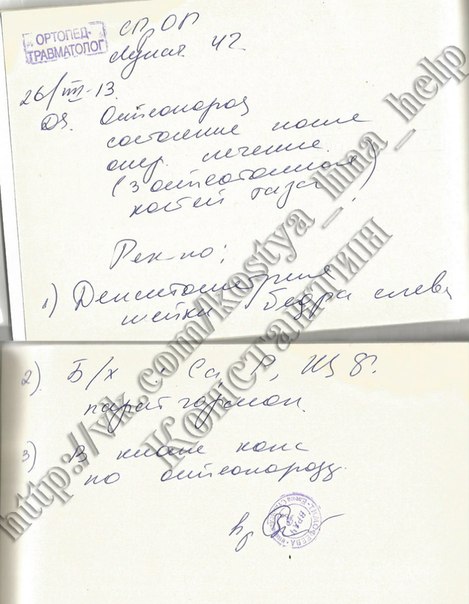 ОРТОПЕД-
ТРАВМАТОЛОГ
26/VIII-13.
DS. Остеопороз
состояние после
опер. лечения
(3 остеотомия
костей таза)
Рек-но:
1) Денситометрия
шейки бедра слева
2). Б/х Ca, P, ЩФ.
парат гормон.
3) В плане конс
по остеопорозу.
http://vk.com/kostya_lima_help
Константин